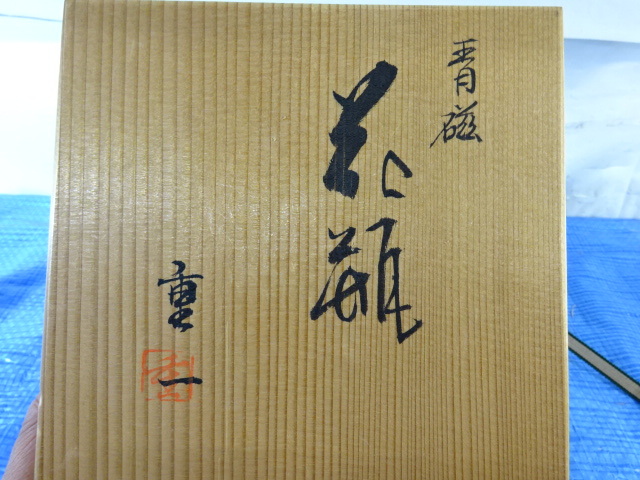 青磁
花瓶
重一